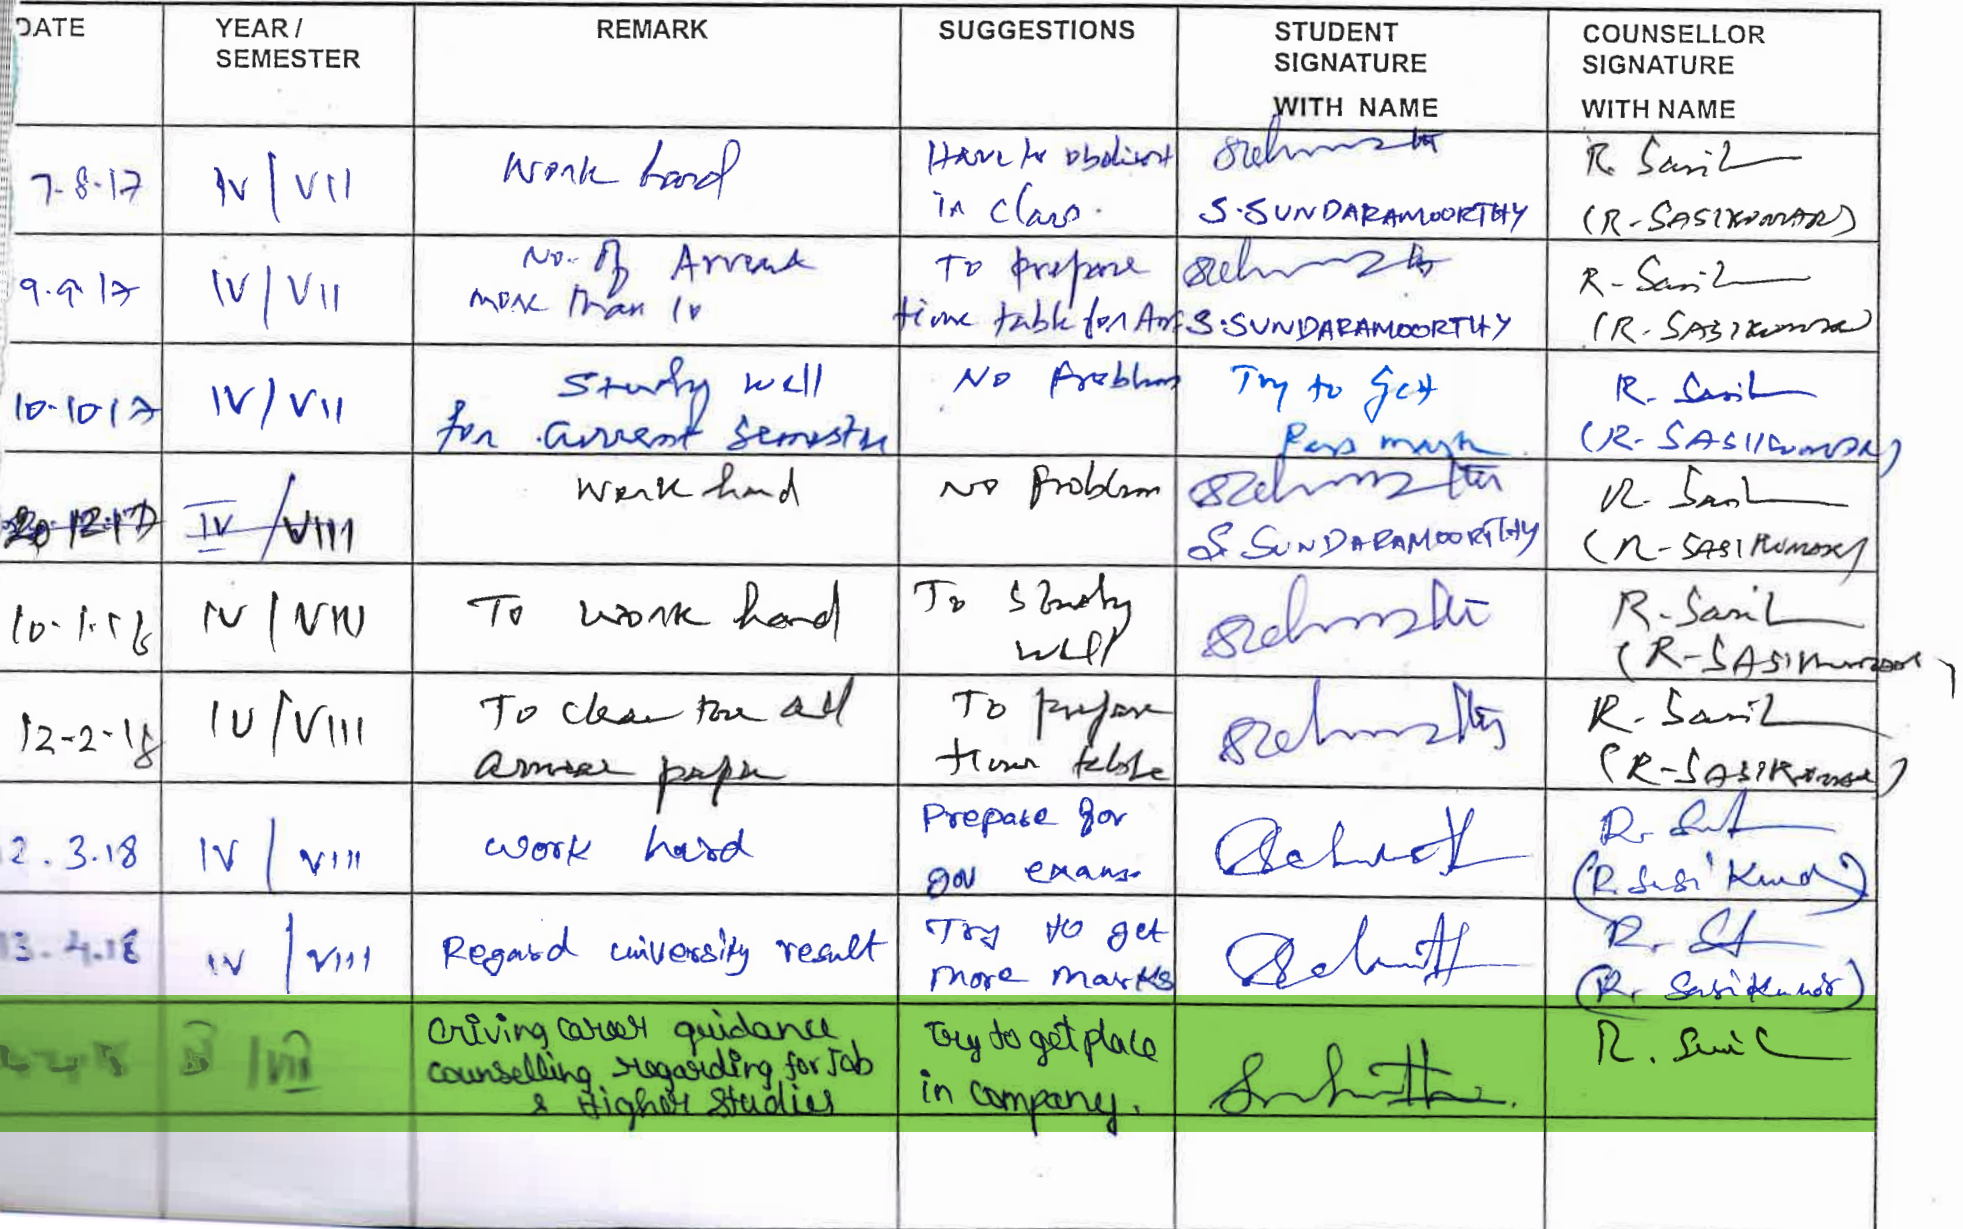 DATE YEAR / SEMESTER REMARK SUGGESTIONS STUDENT SIGNATURE WITH NAME COUNSELLOR SIGNATURE WITH NAME
7-8-17 IV / VII Work hard Have to obedient in class. S. SUNDARAMOORTHY R. Sasik (R-SASIKUMAR)
9.9.17 IV / VII No. of Arrear more than 10 To prepare time table for Arr S. SUNDARAMOORTHY R-Sasik (R-SASIKUMAR)
10-10-17 IV / VII Study well for current semester No Problem Try to get Pass mark. R. Sasik (R-SASIKUMAR)
20-12-17 IV / VIII Work hard No Problem S. SUNDARAMOORTHY R. Sasik (R-SASIKUMAR)
10-1-18 IV / VIII To work hard To study well R-Sasik (R-SASIKUMAR)
12-2-18 IV / VIII To clear the all arrear paper To prepare time table R-Sasik (R-SASIKUMAR)
2.3.18 IV / VIII work hard Prepare for gov exams. (R. SasiKumar)
13.4.18 IV / VIII Regard university result Try to get more marks (R. SasiKumar)
Giving career guidance counselling regarding for Job & Higher Studies Try to get place in company.